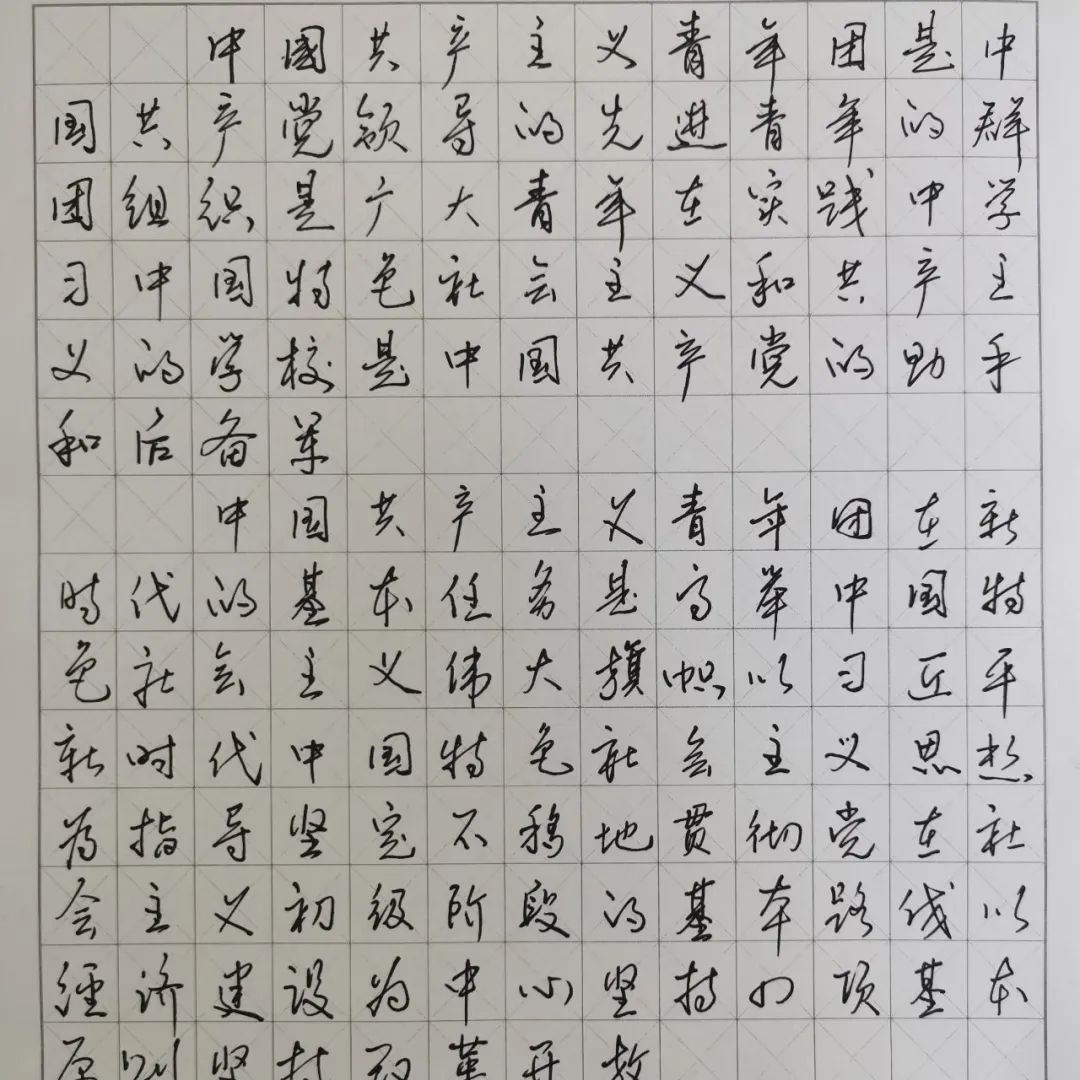 中國共产主义青年团是中
国共产党领导的先进青年的群
团组织是广大青年在实践中学
习中国特色社会主义和共产主
义的学校是中国共产党的助手
和后备军
中国共产主义青年团在新
时代的基本任务是高举中国特
色社会主义伟大旗帜以习近平
新时代中国特色社会主义思想
为指导坚定不移地贯彻党在社
会主义初级阶段的基本路线以
經济建设为中心坚持四项基本
原则坚持改革开放